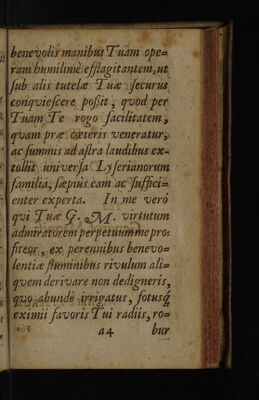 benevolis manibus Tuam ope-
ram humilimè efflagitantem, ut
sub alis tutelæ Tuæ securus
conquiescere possit, quod per
Tuam Te rogo facilitatem,
quam præ cæteris veneratur,
ac summis ad astra laudibus ex-
tollit universa Lyserianorum
familia, sæpius eam ac suffici-
enter experta. In me verò
qui Tuæ G. M. virtutum
admiratorem perpetuum me pro-
fiteor, ex perennibus benevo-
lentiæ fluminibus rivulum ali-
quem derivare non dedigneris,
quo abundè irrigatus, fotusq́
eximii favoris Tui radiis, ro-
a4 bur